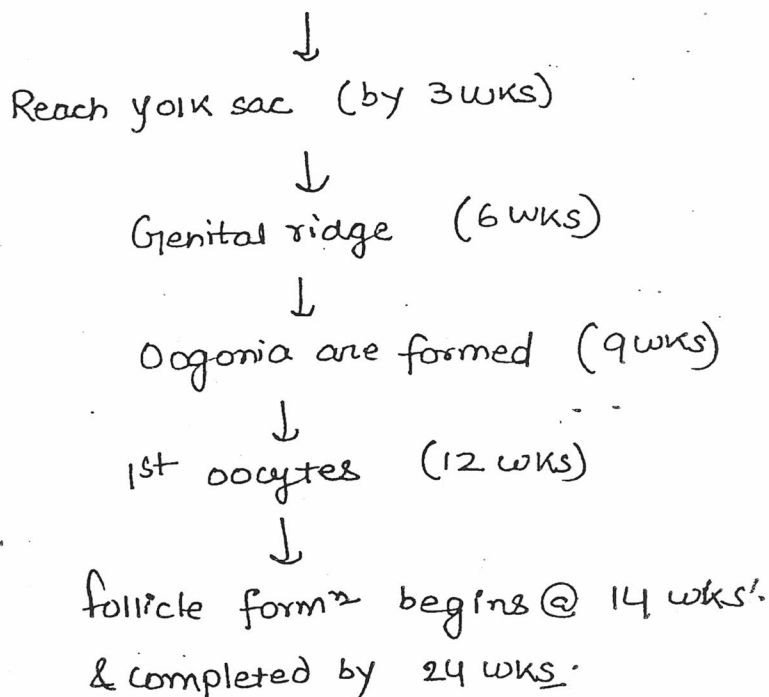 ↓
Reach yolk sac (by 3 wks)
↓
Genital ridge (6 wks)
↓
Oogonia are formed (9 wks)
↓
1st oocytes (12 wks)
↓
follicle formⁿ begins @ 14 wks.
& completed by 24 wks.